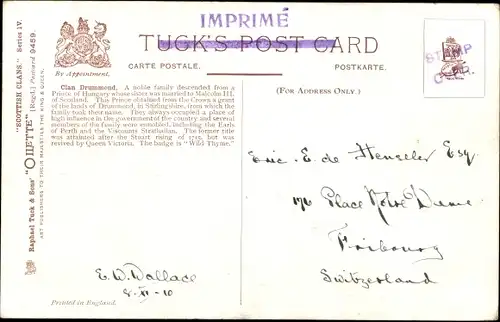 IMPRIMÉ
TUCK'S POST CARD
CARTE POSTALE.
POSTKARTE.
By Appointment.
(FOR ADDRESS ONLY.)
STAMP
"SCOTTISH CLANS." Series IV.
"OILETTE" [Regd.] Postcard 9459.
Raphael Tuck & Sons'
ART PUBLISHERS TO THEIR MAJESTIES THE KING & QUEEN.
Clan Drummond. A noble family descended from a
Prince of Hungary whose sister was married to Malcolm III.
of Scotland. This Prince obtained from the Crown a grant
of the lands of Drummond, in Stirlingshire, from which the
family took their name. They always occupied a place of
high influence in the government of the country and several
members of the family were ennobled, including the Earls
of Perth and the Viscounts Strathallan. The former title
was attainted after the Stuart rising of 1715, but was
revived by Queen Victoria. The badge is "Wild Thyme."
Eric. E. de Henseler Esq
176 Place Notre Dame
Fribourg
Switzerland
E. W. Wallace
8-XI-10
Printed in England.